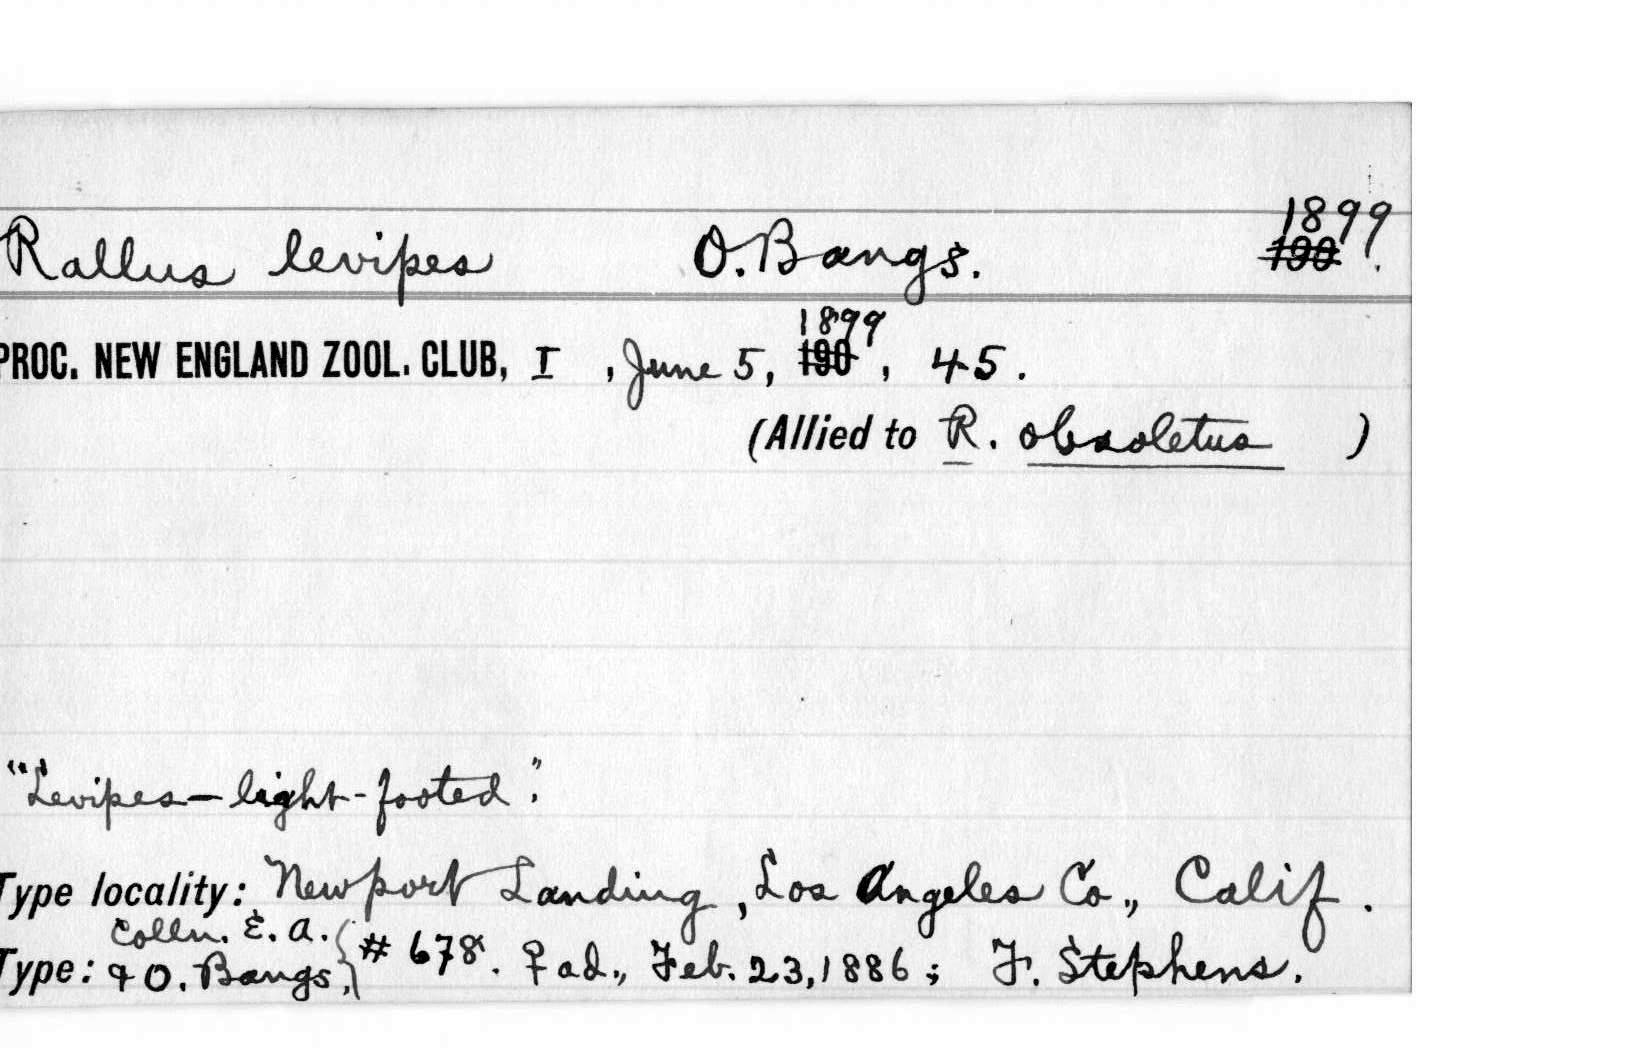 1899
Rallus levipes O. Bangs. 190.
1899
PROC. NEW ENGLAND ZOOL. CLUB, I , June 5, 190 , 45 .
(Allied to R. obsoletus )
"Levipes—light-footed".
Type locality: Newport Landing, Los Angeles Co., Calif.
Colln. E. A.
Type: & O. Bangs, } # 678. ♀ ad., Feb. 23, 1886; F. Stephens.